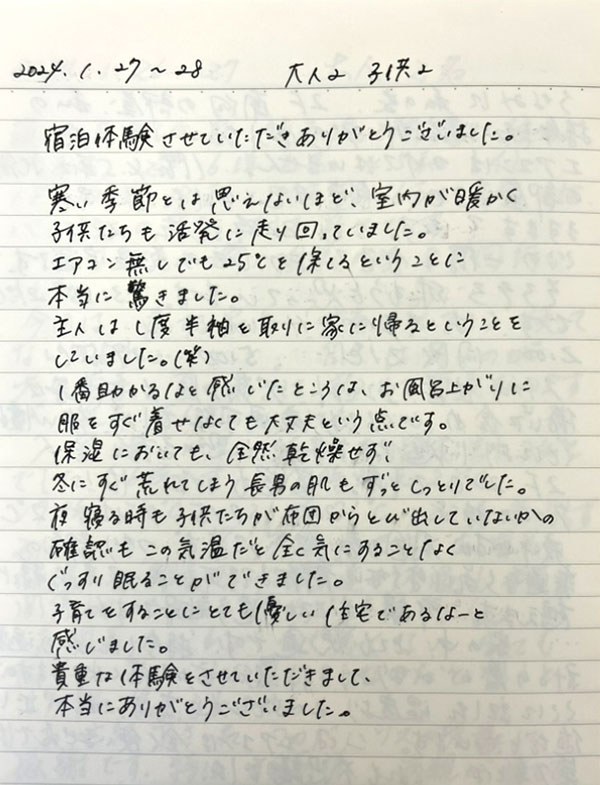 2024.1.27~28 大人2 子供2
宿泊体験させていただきありがとうございました。
寒い季節とは思えないほど、室内が暖かく
子供たちも活発に走り回っていました。
エアコン無しでも25℃を保てるということに
本当に驚きました。
主人は1度半袖を取りに家に帰るということを
していました。(笑)
1番助かるなと感じたところは、お風呂上がりに
服をすぐ着せなくても大丈夫という点です。
保湿においても、全然乾燥せず、
冬にすぐ荒れてしまう長男の肌もずっとしっとりでした。
夜寝る時も子供たちが布団からとび出していないかの
確認もこの気温だと全く気にすることなく
ぐっすり眠ることができました。
子育てをすることにとても優しい住宅であるなーと
感じました。
貴重な体験をさせていただきまして、
本当にありがとうございました。